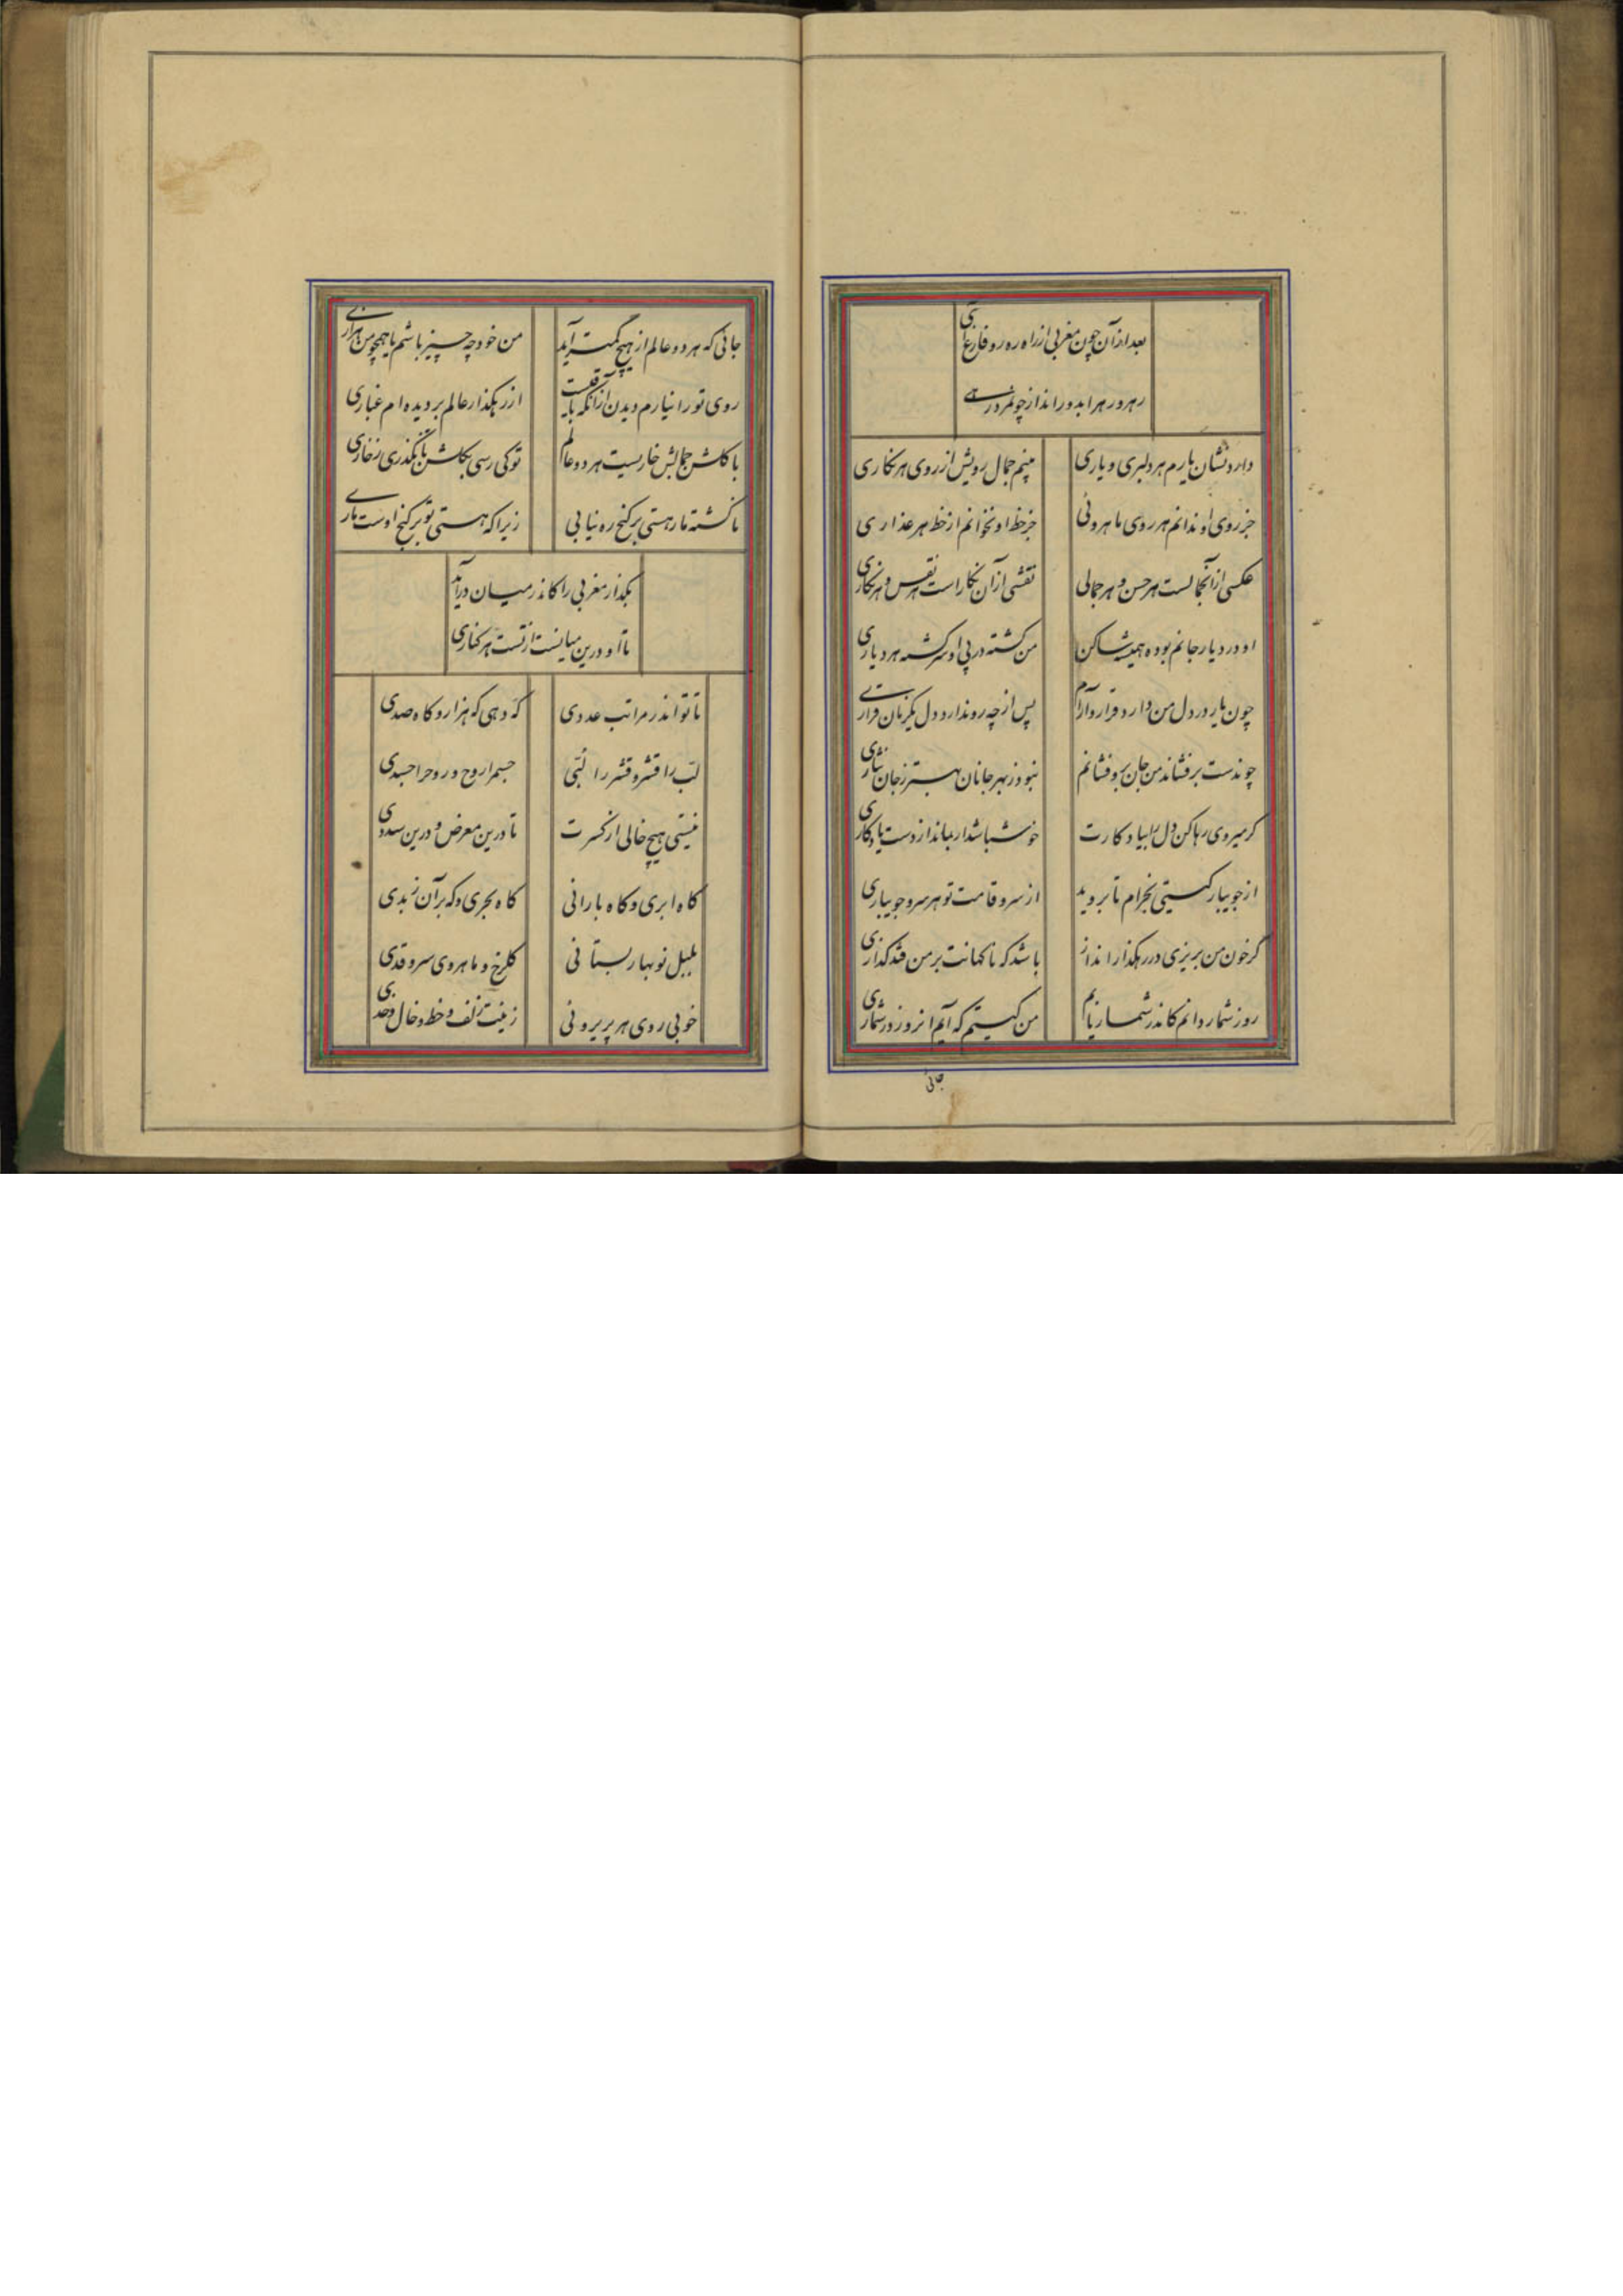 بعد از آن چون مغربی از راه ره رو فارغ آی
رهرو رهرا بدور انداز چون در رهی
دارد نشان یارم هر دلبری و یاری
بینم جمال رویش از روی هر نکاری
جز روی او ندانم هر روی ماهروئی
جز خط او نخوانم از خط هر عذاری
عکسی از آنجمالست هر حسن و هر جمالی
نقشی از آن نکار است هر نقس و هر نکاری
او در دیار جانم بوده همیشه ساکن
من کشته در پی او سرکشته هر دیاری
چون یار در دل من دارد قرار و آرام
پس از چه رو ندارد دل یکزمان قراری
چوندست برفشاند من جان برو فشانم
نبود ز بهر جانان بهتر ز جان نثاری
کر میروی رها کن دل را بیادکارت
خوش باشد ار بماند از دوست یادکاری
از جویبار کیتی بخرام تا بروید
از سرو قامت تو هر سرو جویباری
کر خون من بریزی در رهکذار انداز
باشد که ناکهانت بر من فتد کذاری
روز شمار دانم کاندر شمار نایم
من کیستم که آیم در روز شماری
جائی
جائی که هر دو عالم از هیچ کمتر آید
من خود چه چیز باشم یا همچو من هزاری
روی تو را نیارم دیدن از آنکه باقیست
از رهکذار عالم بر دیده ام غباری
با کلشن جمالش خاریست هر دو عالم
تو کی رسی بکلشن تا نکذری ز خاری
نا کشته مار هستی بر کنج ره نیابی
زیرا که هستی تو بر کنج اوست ماری
بکذار مغربی را کاندر میان در آید
تا او درین میانست از تست هر کناری
تا تو اندر مراتب عددی
که دهی که هزار و کاه صدی
لب را قشر و قشر را لبی
جسم را روح و روح را جسدی
نیستی هیچ خالی از کسرت
تا درین معرض و درین سددی
کاه ابری و کاه بارانی
کاه بحری و که بر آن زبدی
بلبل نوبهار بستانی
کلرخ و ماهروی سرو قدی
خوبی روی هر پریروئی
زینت زلف و خط و خال و خدی